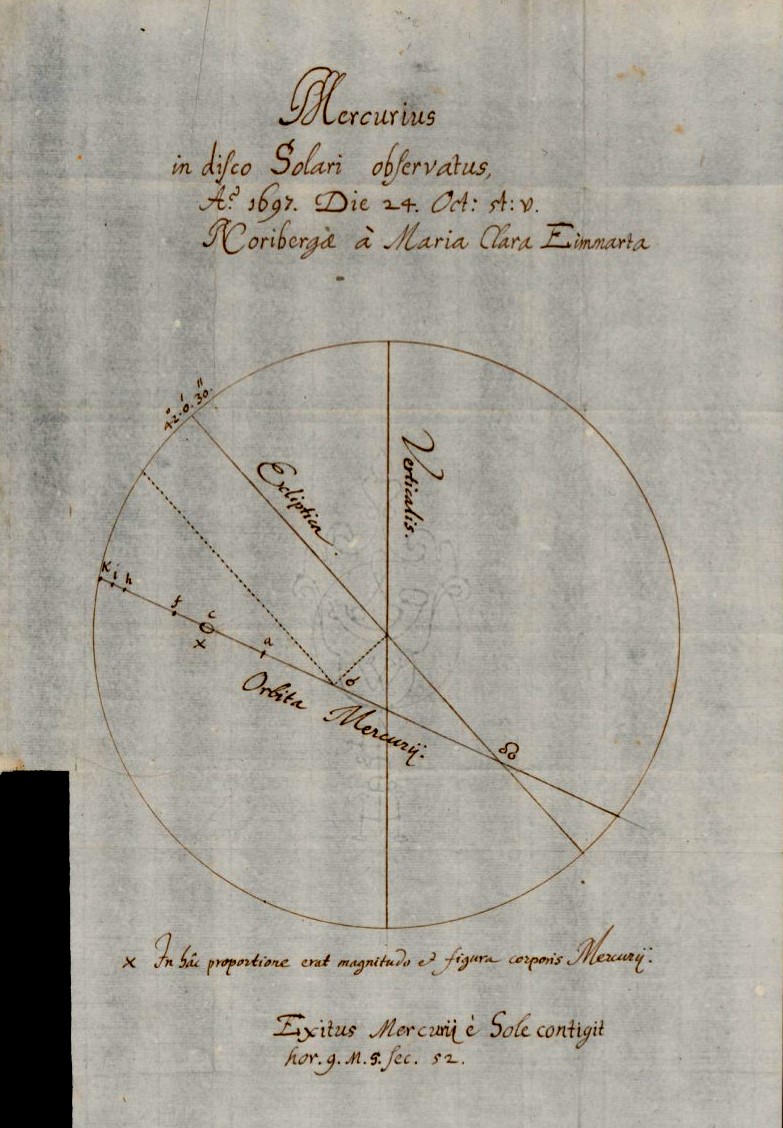 Mercurius
in disco Solari observatus,
Aº. 1697. Die 24. Oct: st: v.
Noribergæ à Maria Clara Eimmarta
42.° 0.' 30."
Ecliptica.
Verticalis.
K i h
f
c
x
a
d
Orbita Mercurij.
☊
x In hâc proportione erat magnitudo et figura corporis Mercurij.
Exitus Mercurij è Sole contigit
hor. 9. M. 5. sec. 52.